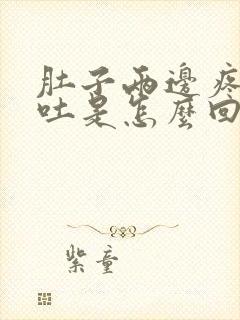 肚子兩邊疼
吐是怎麼回
紫童